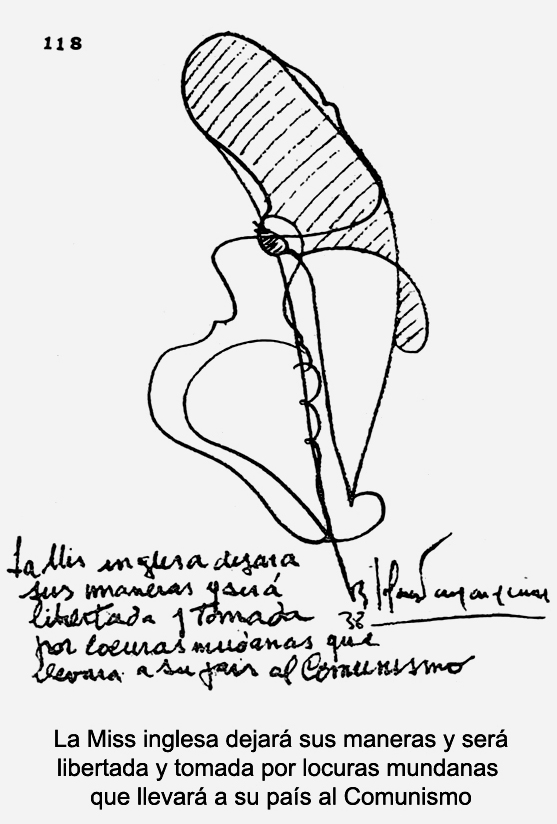 118
La Mis inglesa dejara
sus maneras y será
libertada y tomada
por locuras mundanas que
llevara a su pais al Comunismo
B
38
La Miss inglesa dejará sus maneras y será
libertada y tomada por locuras mundanas
que llevará a su país al Comunismo